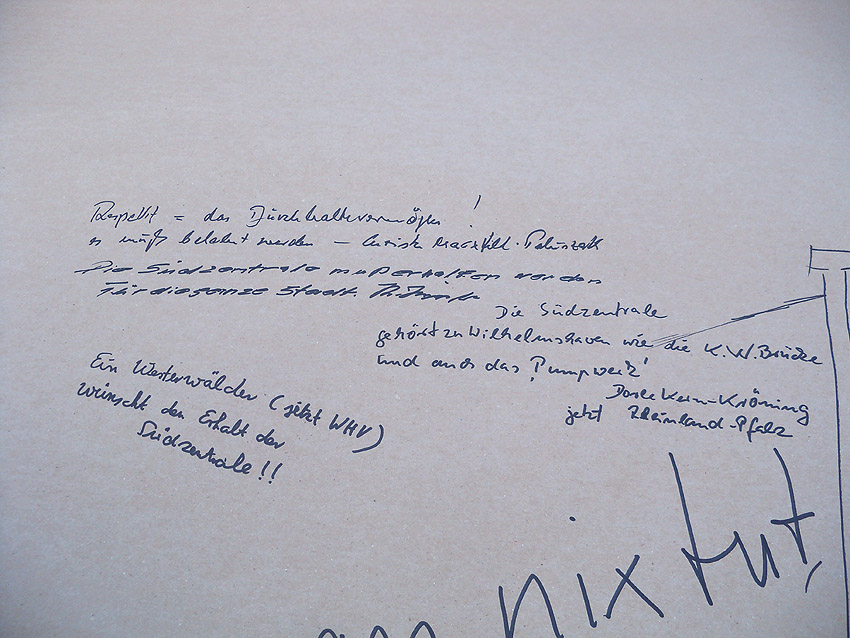 Respekt = das Durchhaltevermögen!
es muß belohnt werden –
Die Südzentrale muß erhalten werden
Für die ganze Stadt.
Die Südzentrale
gehört zu Wilhelmshaven wie die K.W. Brücke
und auch das "Pumpwerk"
Kern-Kröning
jetzt Rheinland-Pfalz
Ein Westerwälder (jetzt WHV)
wünscht den Erhalt der
Südzentrale!!
nix tut,